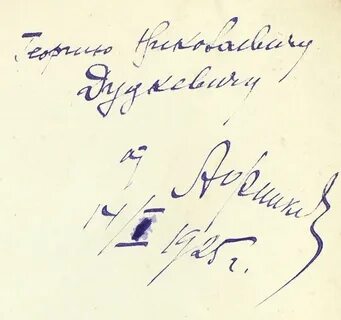 Георгию Николаевичу
Дудкевичу
от
14/I 1925 г.